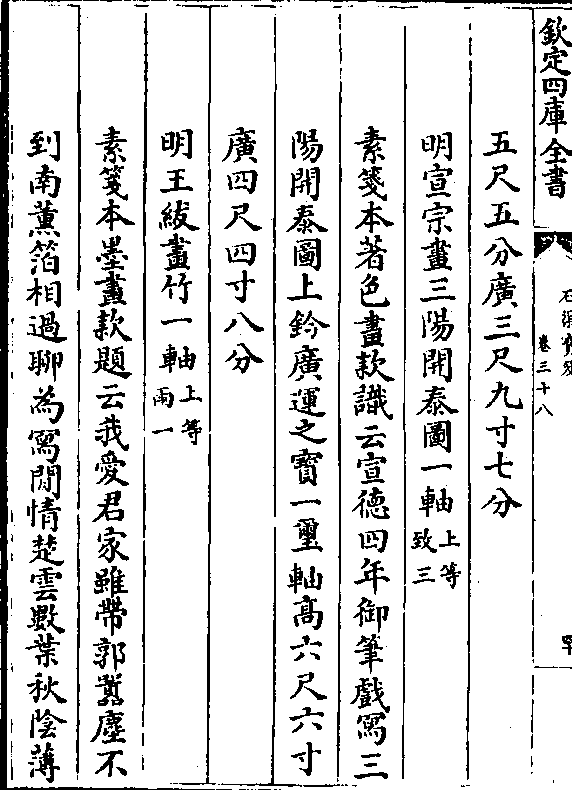 欽定四庫全書
卷三十八
五尺五分廣三尺九寸七分
明宣宗畫三陽開泰圖一軸上等致三
素箋本著色畫款識云宣德四年御筆戲寫三
陽開泰圖上鈐廣運之寶一璽軸高六尺六寸
廣四尺四寸八分
明王紱畫竹一軸上等雨一
素箋本墨畫款題云我愛君家雖帶郭囂塵不
到南薰箔相過聊為寫閒情楚雲數葉秋陰薄